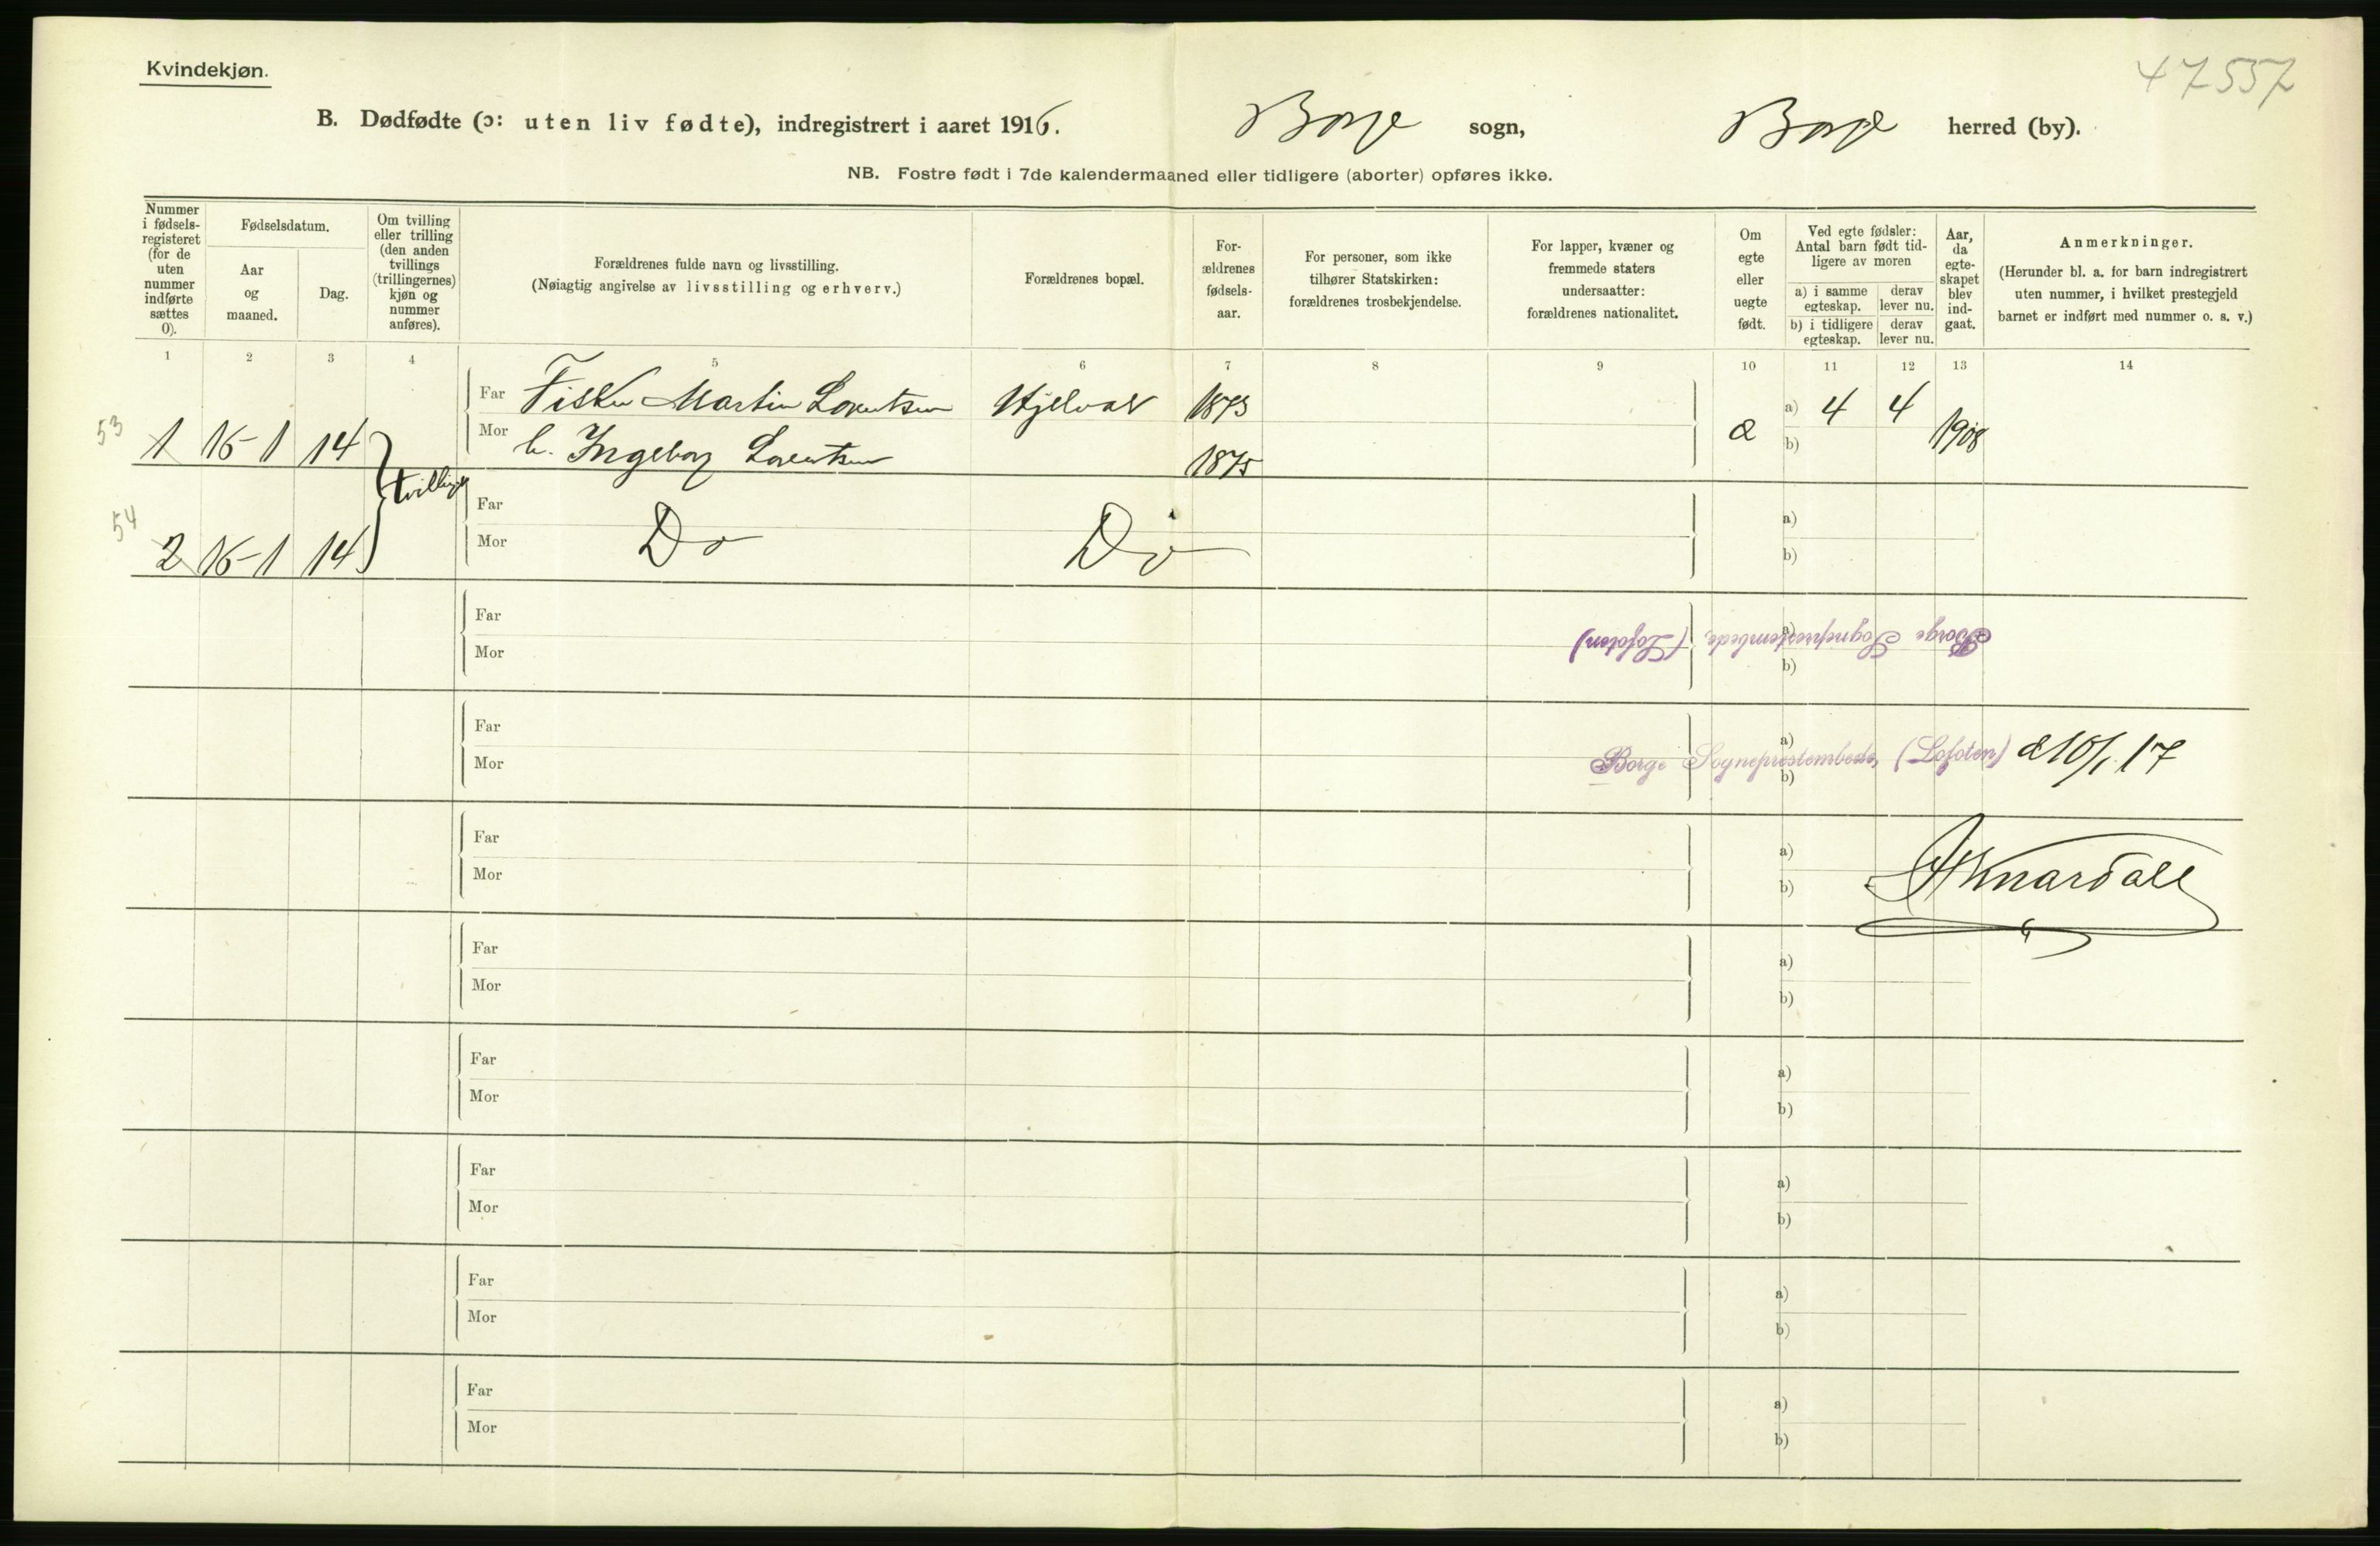 Kvindekjøn.
47557
B. Dødfødte (ɔ: uten liv fødte), indregistrert i aaret 1916. Borge sogn, Borge herred (by).
NB. Fostre født i 7de kalendermaaned eller tidligere (aborter) opføres ikke.
Nummer i fødsels-registeret (for de uten nummer indførte sættes 0).
Fødselsdatum.
Aar og maaned.
Dag.
Om tvilling eller trilling (den anden tvillings (trillingernes) kjøn og nummer anføres).
Forældrenes fulde navn og livsstilling.
(Nøiagtig angivelse av livsstilling og erhverv.)
Forældrenes bopæl.
For-ældrenes fødsels-aar.
For personer, som ikke tilhører Statskirken: forældrenes trosbekjendelse.
For lapper, kvæner og fremmede staters undersaatter: forældrenes nationalitet.
Om egte eller uegte født.
Ved egte fødsler: Antal barn født tid-ligere av moren
a) i samme egteskap. derav lever nu.
b) i tidligere egteskap. derav lever nu.
Aar, da egte-skapet blev ind-gaat.
Anmerkninger.
(Herunder bl. a. for barn indregistrert uten nummer, i hvilket prestegjeld barnet er indført med nummer o. s. v.)
1 2 3 4 5 6 7 8 9 10 11 12 13 14
53 1 16-1 14 Far Fisker Martin Lorentsen 1873 a) 4 4
Mor h. Ingeborg Lorentsen 1875 b) 1908
tvillinger
Far a)
54 2 16-1 14 Mor Do Do b)
Far a)
Borge Sogneprestembede, (Lofoten)
Mor b)
Far a)
Borge Sogneprestembede, (Lofoten) d 10/1 17
Mor b)
Far a)
Mor b)
Far a)
Mor b)
Far a)
Mor b)
Far a)
Mor b)
Far a)
Mor b)
Far a)
Mor b)